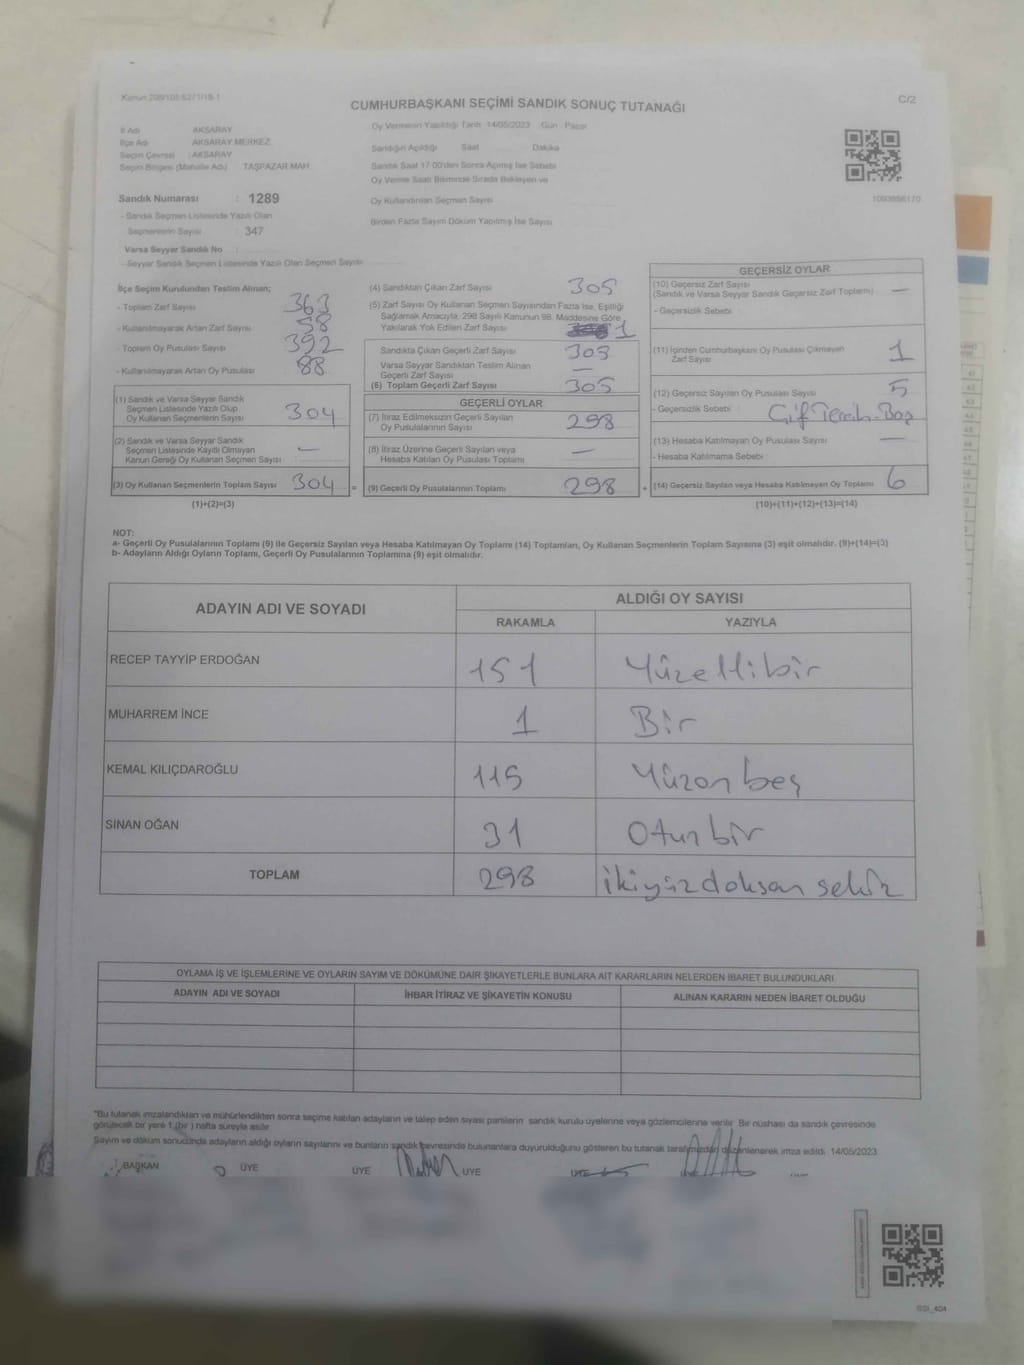 C/2
CUMHURBAŞKANI SEÇİMİ SANDIK SONUÇ TUTANAĞI
İl Adı : AKSARAY
İlçe Adı : AKSARAY MERKEZ
Seçim Çevresi : AKSARAY
Seçim Bölgesi (Mahalle Adı) : TAŞPAZAR MAH.
Oy Vermenin Yapıldığı Tarih 14/05/2023 Gün Pazar
Sandığın Açıldığı Saat Dakika
Sandık Saat 17:00'den Sonra Açılmış İse Sebebi
Oy Verme Saati Bitiminde Sırada Bekleyen ve
Oy Kullandırılan Seçmen Sayısı
Birden Fazla Sayım Döküm Yapılmış İse Sayısı
1093856170
Sandık Numarası : 1289
- Sandık Seçmen Listesinde Yazılı Olan
Seçmenlerin Sayısı : 347
Varsa Seyyar Sandık No
- Seyyar Sandık Seçmen Listesinde Yazılı Olan Seçmen Sayısı
İlçe Seçim Kurulundan Teslim Alınan;
- Toplam Zarf Sayısı 363
- Kullanılmayarak Artan Zarf Sayısı 58
- Toplam Oy Pusulası Sayısı 392
- Kullanılmayarak Artan Oy Pusulası 88
(1) Sandık ve Varsa Seyyar Sandık
Seçmen Listesinde Yazılı Olup
Oy Kullanan Seçmenlerin Sayısı 304
(2) Sandık ve Varsa Seyyar Sandık
Seçmen Listesinde Kayıtlı Olmayan
Kanun Gereği Oy Kullanan Seçmen Sayısı : —
(3) Oy Kullanan Seçmenlerin Toplam Sayısı 304 =
(1)+(2)=(3)
(4) Sandıktan Çıkan Zarf Sayısı 305
(5) Zarf Sayısı Oy Kullanan Seçmen Sayısından Fazla İse, Eşitliği
Sağlamak Amacıyla, 298 Sayılı Kanunun 98. Maddesine Göre
Yakılarak Yok Edilen Zarf Sayısı 1
Sandıkta Çıkan Geçerli Zarf Sayısı 303
Varsa Seyyar Sandıktan Teslim Alınan
Geçerli Zarf Sayısı —
(6) Toplam Geçerli Zarf Sayısı 305
GEÇERLİ OYLAR
(7) İtiraz Edilmeksizin Geçerli Sayılan
Oy Pusulalarının Sayısı 298
(8) İtiraz Üzerine Geçerli Sayılan veya
Hesaba Katılan Oy Pusulası Toplamı —
(9) Geçerli Oy Pusulalarının Toplamı 298 +
GEÇERSİZ OYLAR
(10) Geçersiz Zarf Sayısı
(Sandık ve Varsa Seyyar Sandık Geçersiz Zarf Toplamı) —
- Geçersizlik Sebebi
(11) İçinden Cumhurbaşkanı Oy Pusulası Çıkmayan
Zarf Sayısı 1
(12) Geçersiz Sayılan Oy Pusulası Sayısı 5
- Geçersizlik Sebebi : Çif Tercih-Boş
(13) Hesaba Katılmayan Oy Pusulası Sayısı —
- Hesaba Katılmama Sebebi
(14) Geçersiz Sayılan veya Hesaba Katılmayan Oy Toplamı 6
(10)+(11)+(12)+(13)=(14)
NOT:
a- Geçerli Oy Pusulalarının Toplamı (9) ile Geçersiz Sayılan veya Hesaba Katılmayan Oy Toplamı (14) Toplamları, Oy Kullanan Seçmenlerin Toplam Sayısına (3) eşit olmalıdır. (9)+(14)=(3)
b- Adayların Aldığı Oyların Toplamı, Geçerli Oy Pusulalarının Toplamına (9) eşit olmalıdır.
ADAYIN ADI VE SOYADI
ALDIĞI OY SAYISI
RAKAMLA YAZIYLA
RECEP TAYYİP ERDOĞAN 151 Yüzellibir
MUHARREM İNCE 1 Bir
KEMAL KILIÇDAROĞLU 115 Yüzon beş
SİNAN OĞAN 31 Otuz bir
TOPLAM 298 ikiyüz doksan sekiz
OYLAMA İŞ VE İŞLEMLERİNE VE OYLARIN SAYIM VE DÖKÜMÜNE DAİR ŞİKAYETLERLE BUNLARA AİT KARARLARIN NELERDEN İBARET BULUNDUKLARI
ADAYIN ADI VE SOYADI İHBAR İTİRAZ VE ŞİKAYETİN KONUSU ALINAN KARARIN NEDEN İBARET OLDUĞU
"Bu tutanak imzalandıktan ve mühürlendikten sonra seçime katılan adayların ve talep eden siyasi partilerin sandık kurulu üyelerine veya gözlemcilerine verilir. Bir nüshası da sandık çevresinde
görülecek bir yere 1 (bir) hafta süreyle asılır.
Sayım ve döküm sonucunda adayların aldığı oyların sayılarını ve bunların sandık çevresinde bulunanlara duyurulduğunu gösteren bu tutanak tarafımızdan düzenlenerek imza edildi. 14/05/2023
BAŞKAN ÜYE ÜYE ÜYE ÜYE